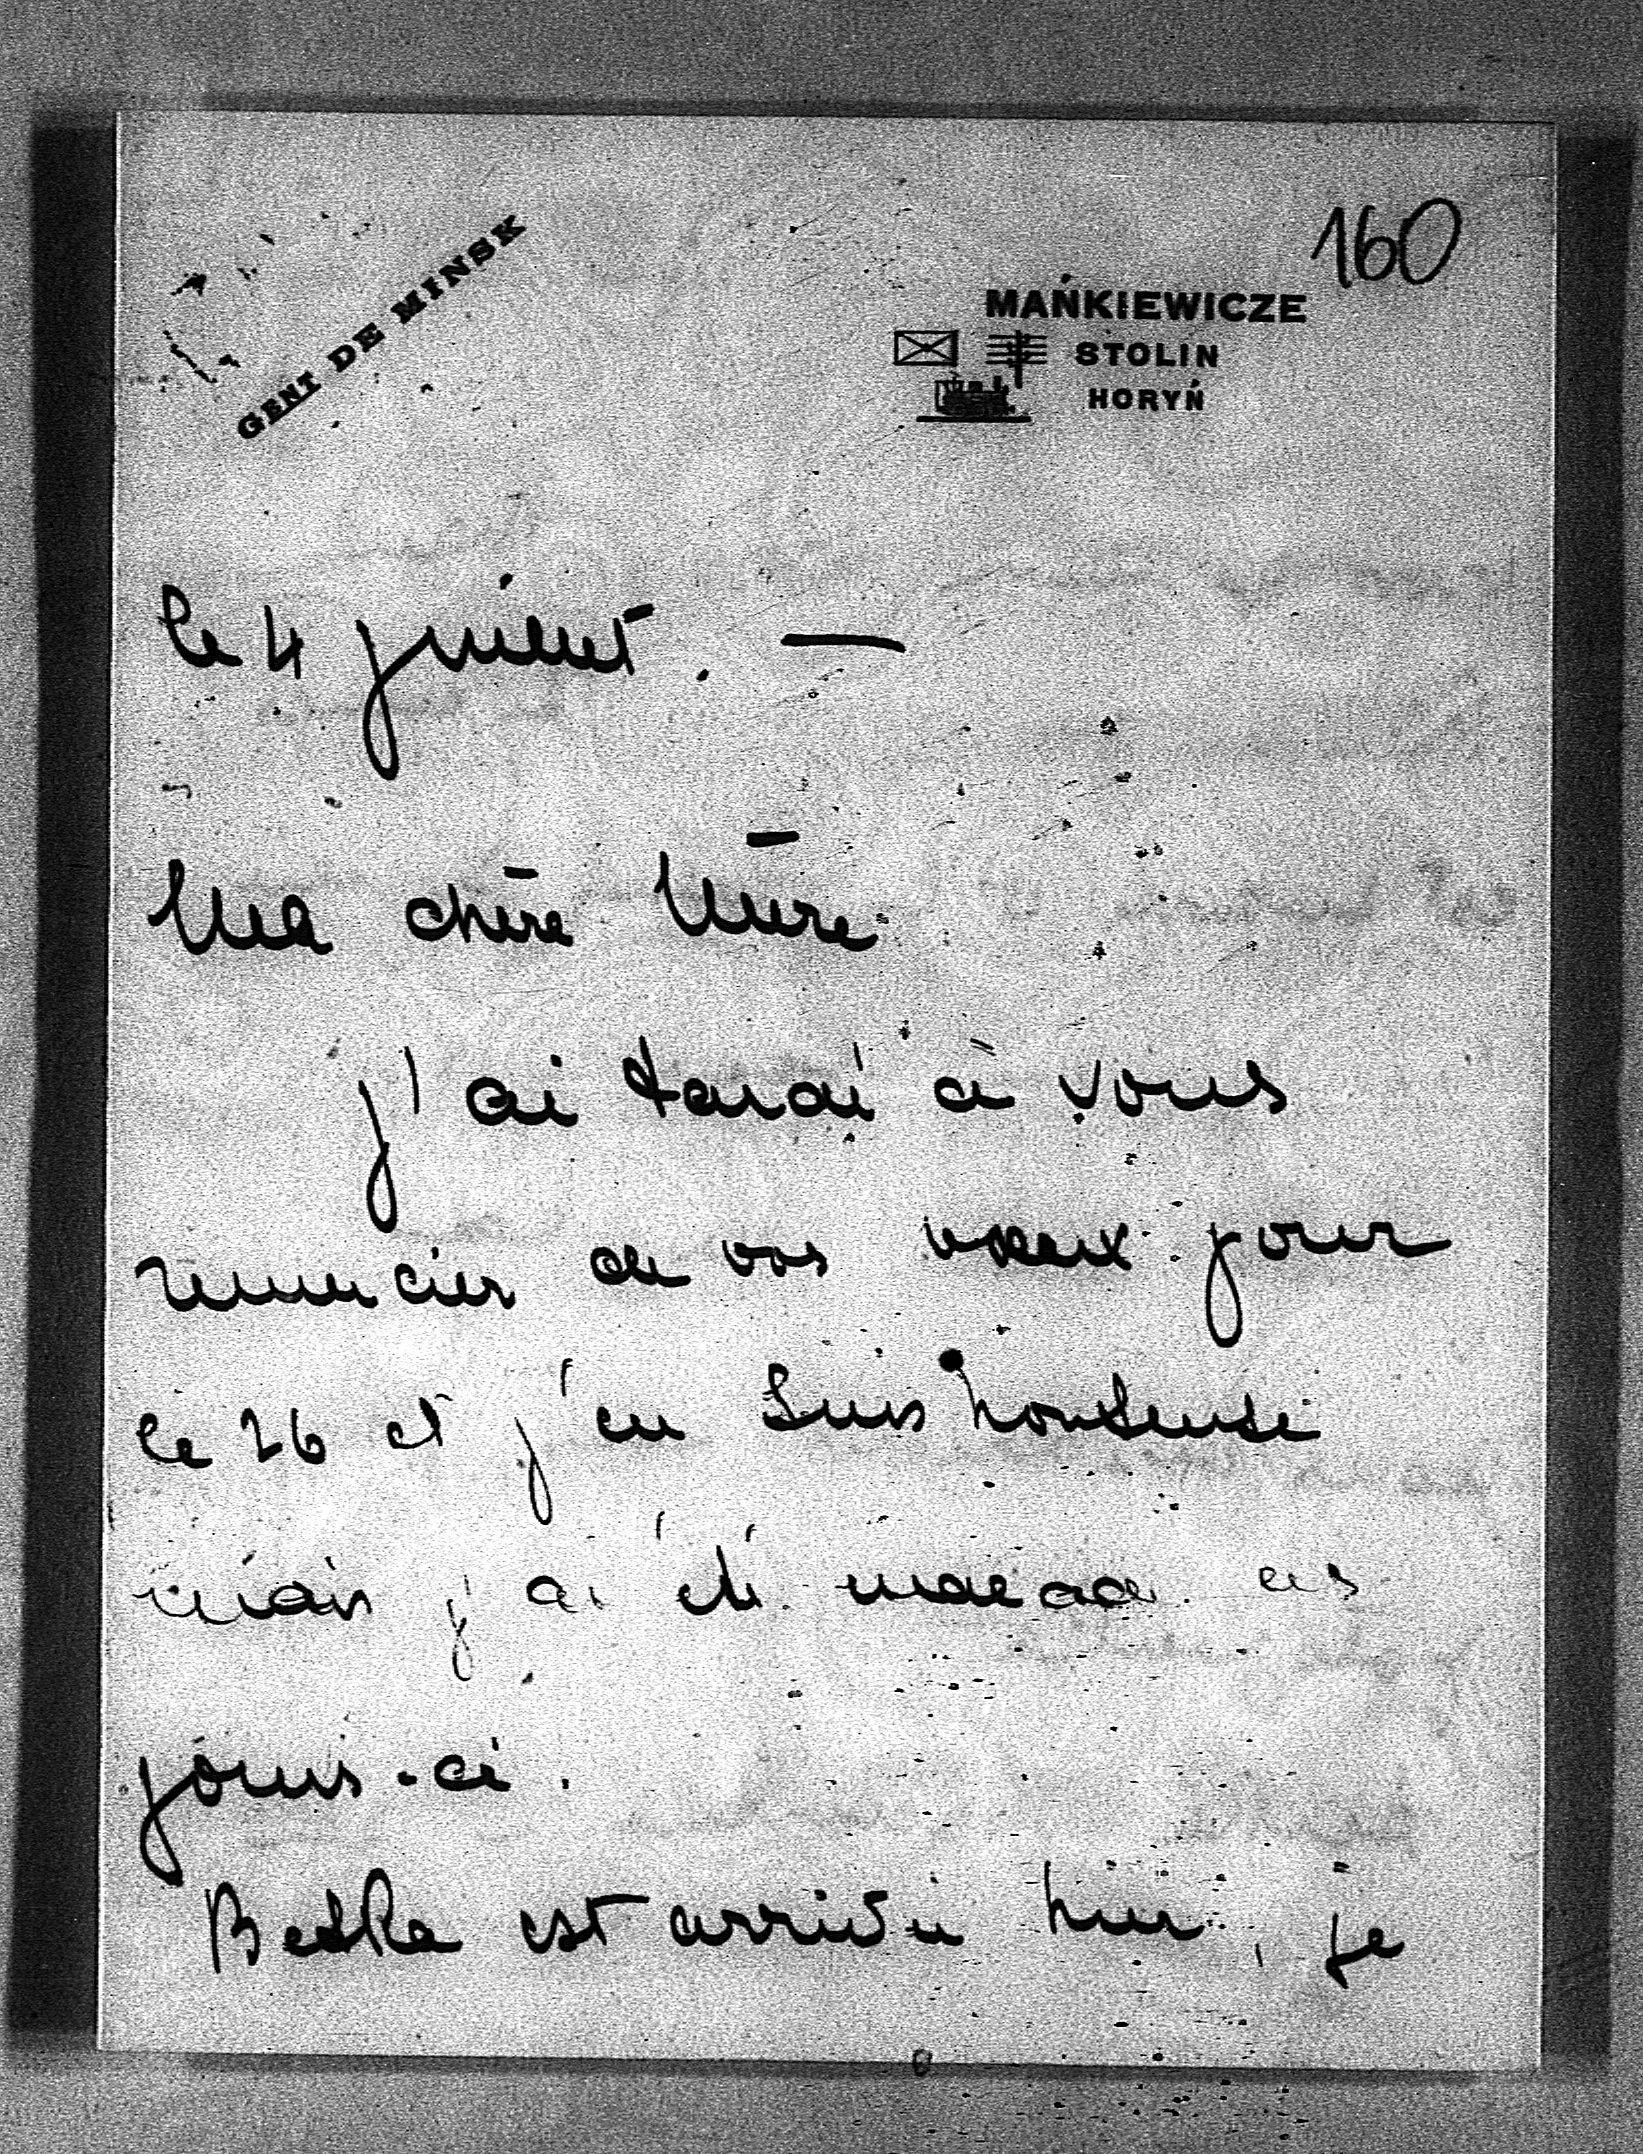 160
GENT DE MINSK
MAŃKIEWICZE
STOLIN
HORYŃ
le 4 juillet. —
Ma chère Mère
j'ai tardé à vous
remercier de vos vœux pour
le 26 et j'en suis honteuse
mais j'ai été malade ces
jours-ci.
Betka est arrivée hier, je